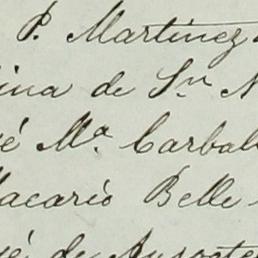 P. Martinez
ina de Sr. N
sé Mª Carbal
Macario Belle
sé de Auroste